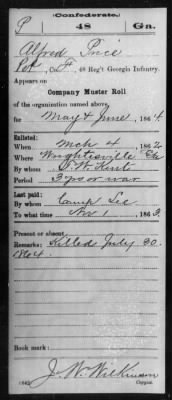 (Confederate.)
P 48 Ga.
Alfred Price
Pvt, Co. F, 48 Reg't Georgia Infantry.
Appears on
Company Muster Roll
of the organization named above,
for May & June, 1864
Enlisted:
When Mch 4, 1862
Where Wrightsville Ga
By whom T. W. Kent
Period 3 yrs or war
Last paid:
By whom Camp Lee
To what time Nov 1, 1863
Present or absent
Remarks: Killed July 30
1864.
J. W. Wilkinson
(642) Copyist.